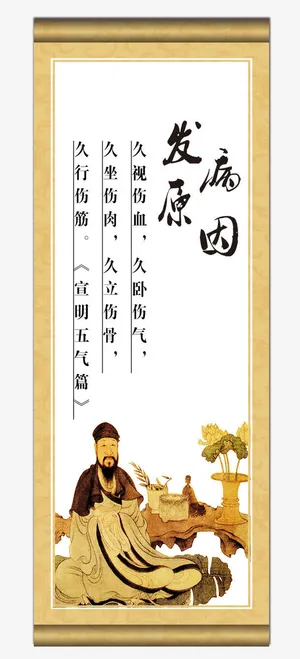 病因
发原
久视伤血，久卧伤气，
久坐伤肉，久立伤骨，
久行伤筋。《宣明五气篇》